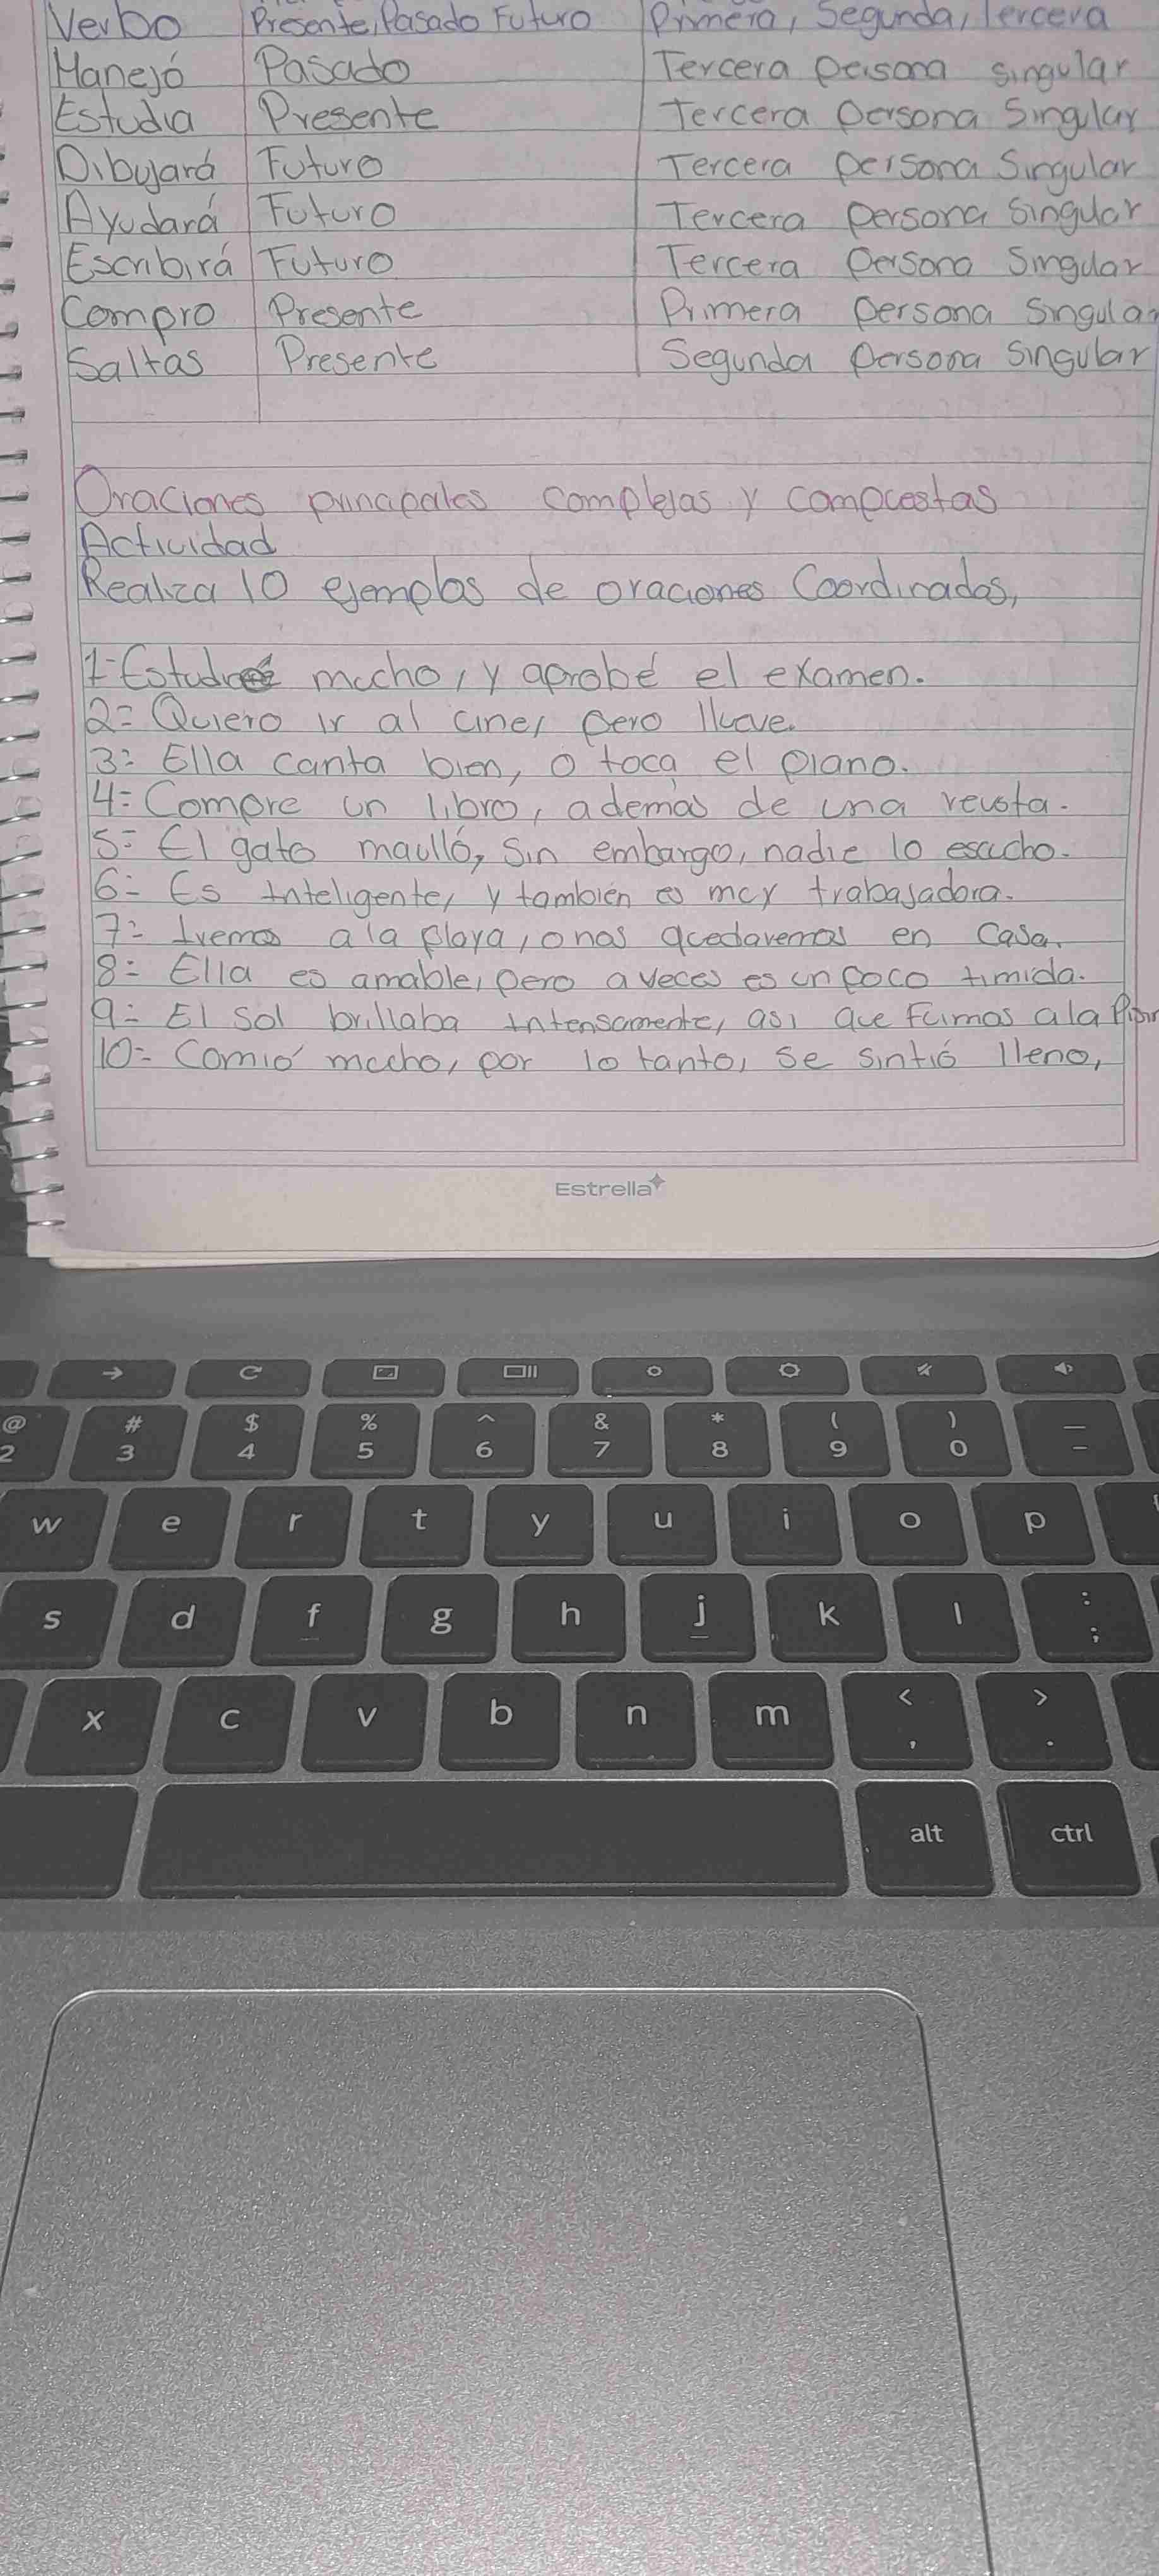 Verbo Presente, Pasado Futuro Primera, Segunda, Tercera
Manejó Pasado Tercera persona singular
Estudia Presente Tercera persona Singular
Dibujará Futuro Tercera persona Singular
Ayudará Futuro Tercera persona Singular
Escribirá Futuro Tercera persona Singular
Compro Presente Primera persona Singular
Saltas Presente Segunda persona Singular
Oraciones principales complejas y compuestas
Actividad
Realiza 10 ejemplos de oraciones Coordinadas,
1- Estudié mucho, y aprobé el examen.
2= Quiero ir al cine, pero llueve.
3= Ella canta bien, o toca el piano.
4= Compre un libro, además de una revista.
5= El gato maulló, Sin embargo, nadie lo escucho.
6= Es Inteligente, y también es muy trabajadora.
7= Iremos a la playa, o nos quedaremos en Casa.
8= Ella es amable, pero a veces es un poco timida.
9= El Sol brillaba Intensamente, asi que Fuimos a la
10= Comió mucho, por lo tanto, se sintió lleno,
Estrella
@ # $ % ^ & * ( ) _
2 3 4 5 6 7 8 9 0 -
w e r t y u i o p
s d f g h j k l : ;
x c v b n m < , > .
alt ctrl